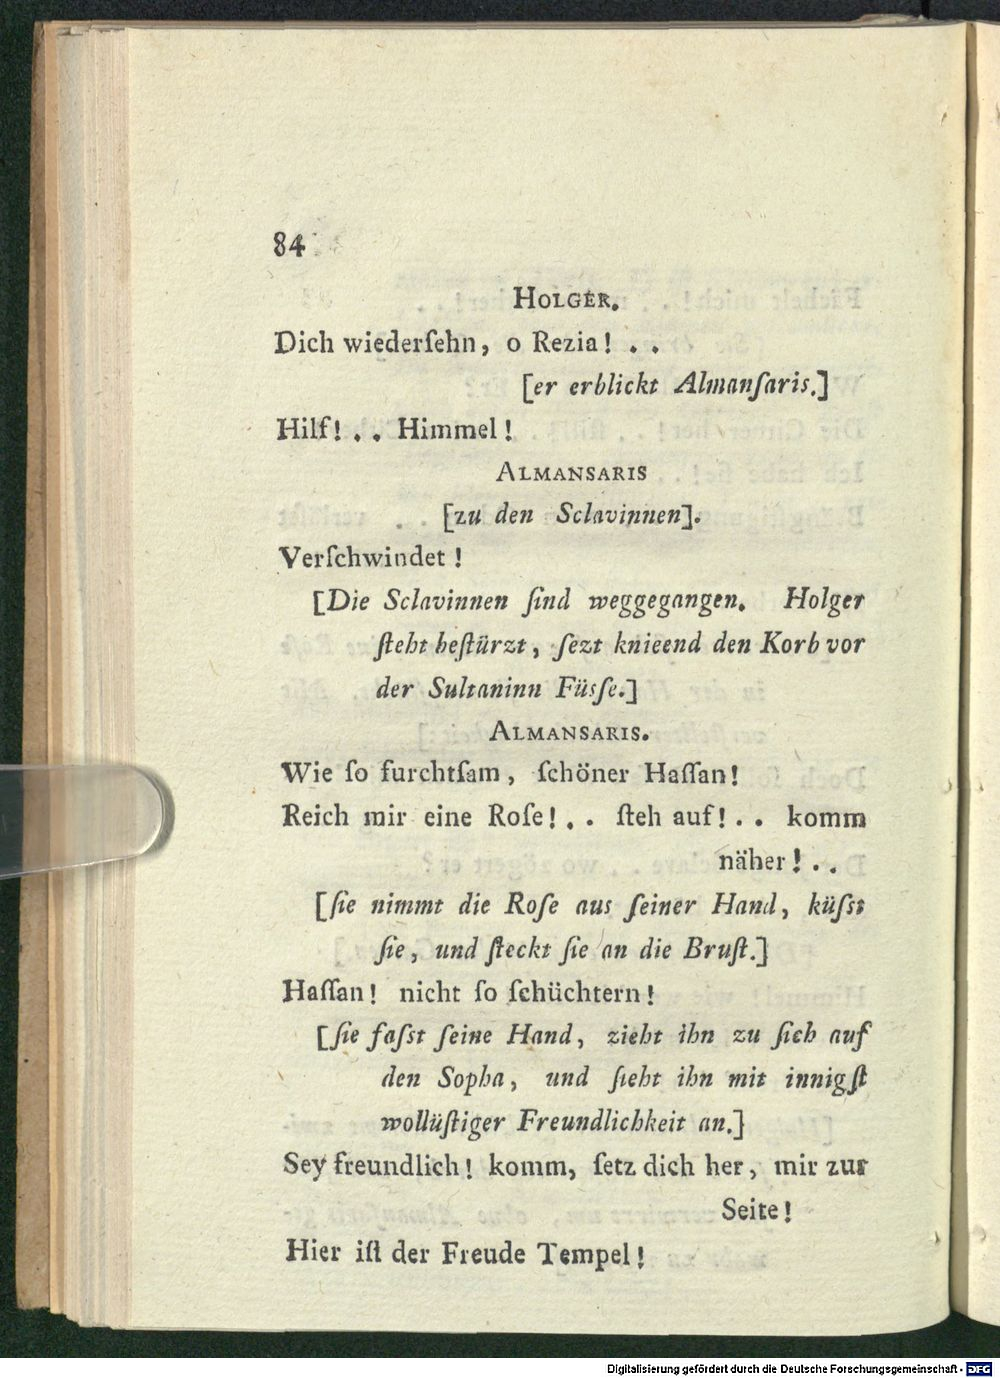 84
HOLGER.
Dich wiederſehn, o Rezia! . .
[er erblickt Almanſaris.]
Hilf! . . Himmel!
ALMANSARIS
[zu den Sclavinnen].
Verſchwindet!
[Die Sclavinnen ſind weggegangen. Holger
ſteht beſtürzt, ſezt knieend den Korb vor
der Sultaninn Füsſe.]
ALMANSARIS.
Wie ſo furchtſam, ſchöner Haſſan!
Reich mir eine Roſe! . . ſteh auf! . . komm
näher! . .
[ſie nimmt die Roſe aus ſeiner Hand, küſst
ſie, und ſteckt ſie an die Bruſt.]
Haſſan! nicht ſo ſchüchtern!
[ſie faſst ſeine Hand, zieht ihn zu ſich auf
den Sopha, und ſieht ihn mit innigſt
wollüſtiger Freundlichkeit an.]
Sey freundlich! komm, ſetz dich her, mir zur
Seite!
Hier iſt der Freude Tempel!
Digitalisierung gefördert durch die Deutsche Forschungsgemeinschaft - DFG